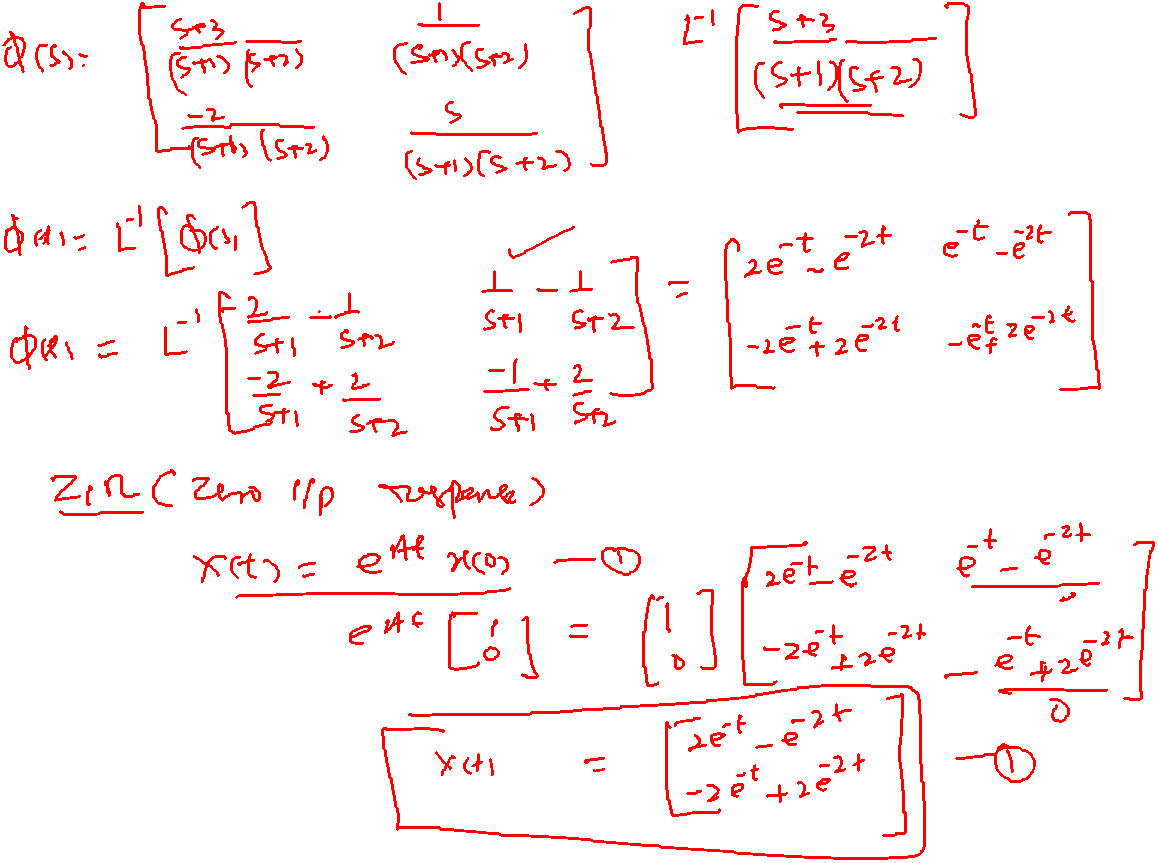 ϕ(s) = [ s+3/(s+1)(s+2)   1/(s+1)(s+2) ; -2/(s+1)(s+2)   s/(s+1)(s+2) ]   L⁻¹ [ s+3/(s+1)(s+2) ]
ϕ(t) = L⁻¹ [ϕ(s)]
ϕ(t) = L⁻¹ [ 2/s+1 - 1/s+2   1/s+1 - 1/s+2 ; -2/s+1 + 2/s+2   -1/s+1 + 2/s+2 ] = [ 2e^-t - e^-2t   e^-t - e^-2t ; -2e^-t + 2e^-2t   -e^-t + 2e^-2t ]
Z.I.R (Zero i/p response)
x(t) = e^At x(0) — ①
e^At [1 ; 0] = [1 ; 0] [ 2e^-t - e^-2t   e^-t - e^-2t ; -2e^-t + 2e^-2t   - e^-t + 2e^-2t ]
0
x(t) = [ 2e^-t - e^-2t ; -2e^-t + 2e^-2t ] — ①